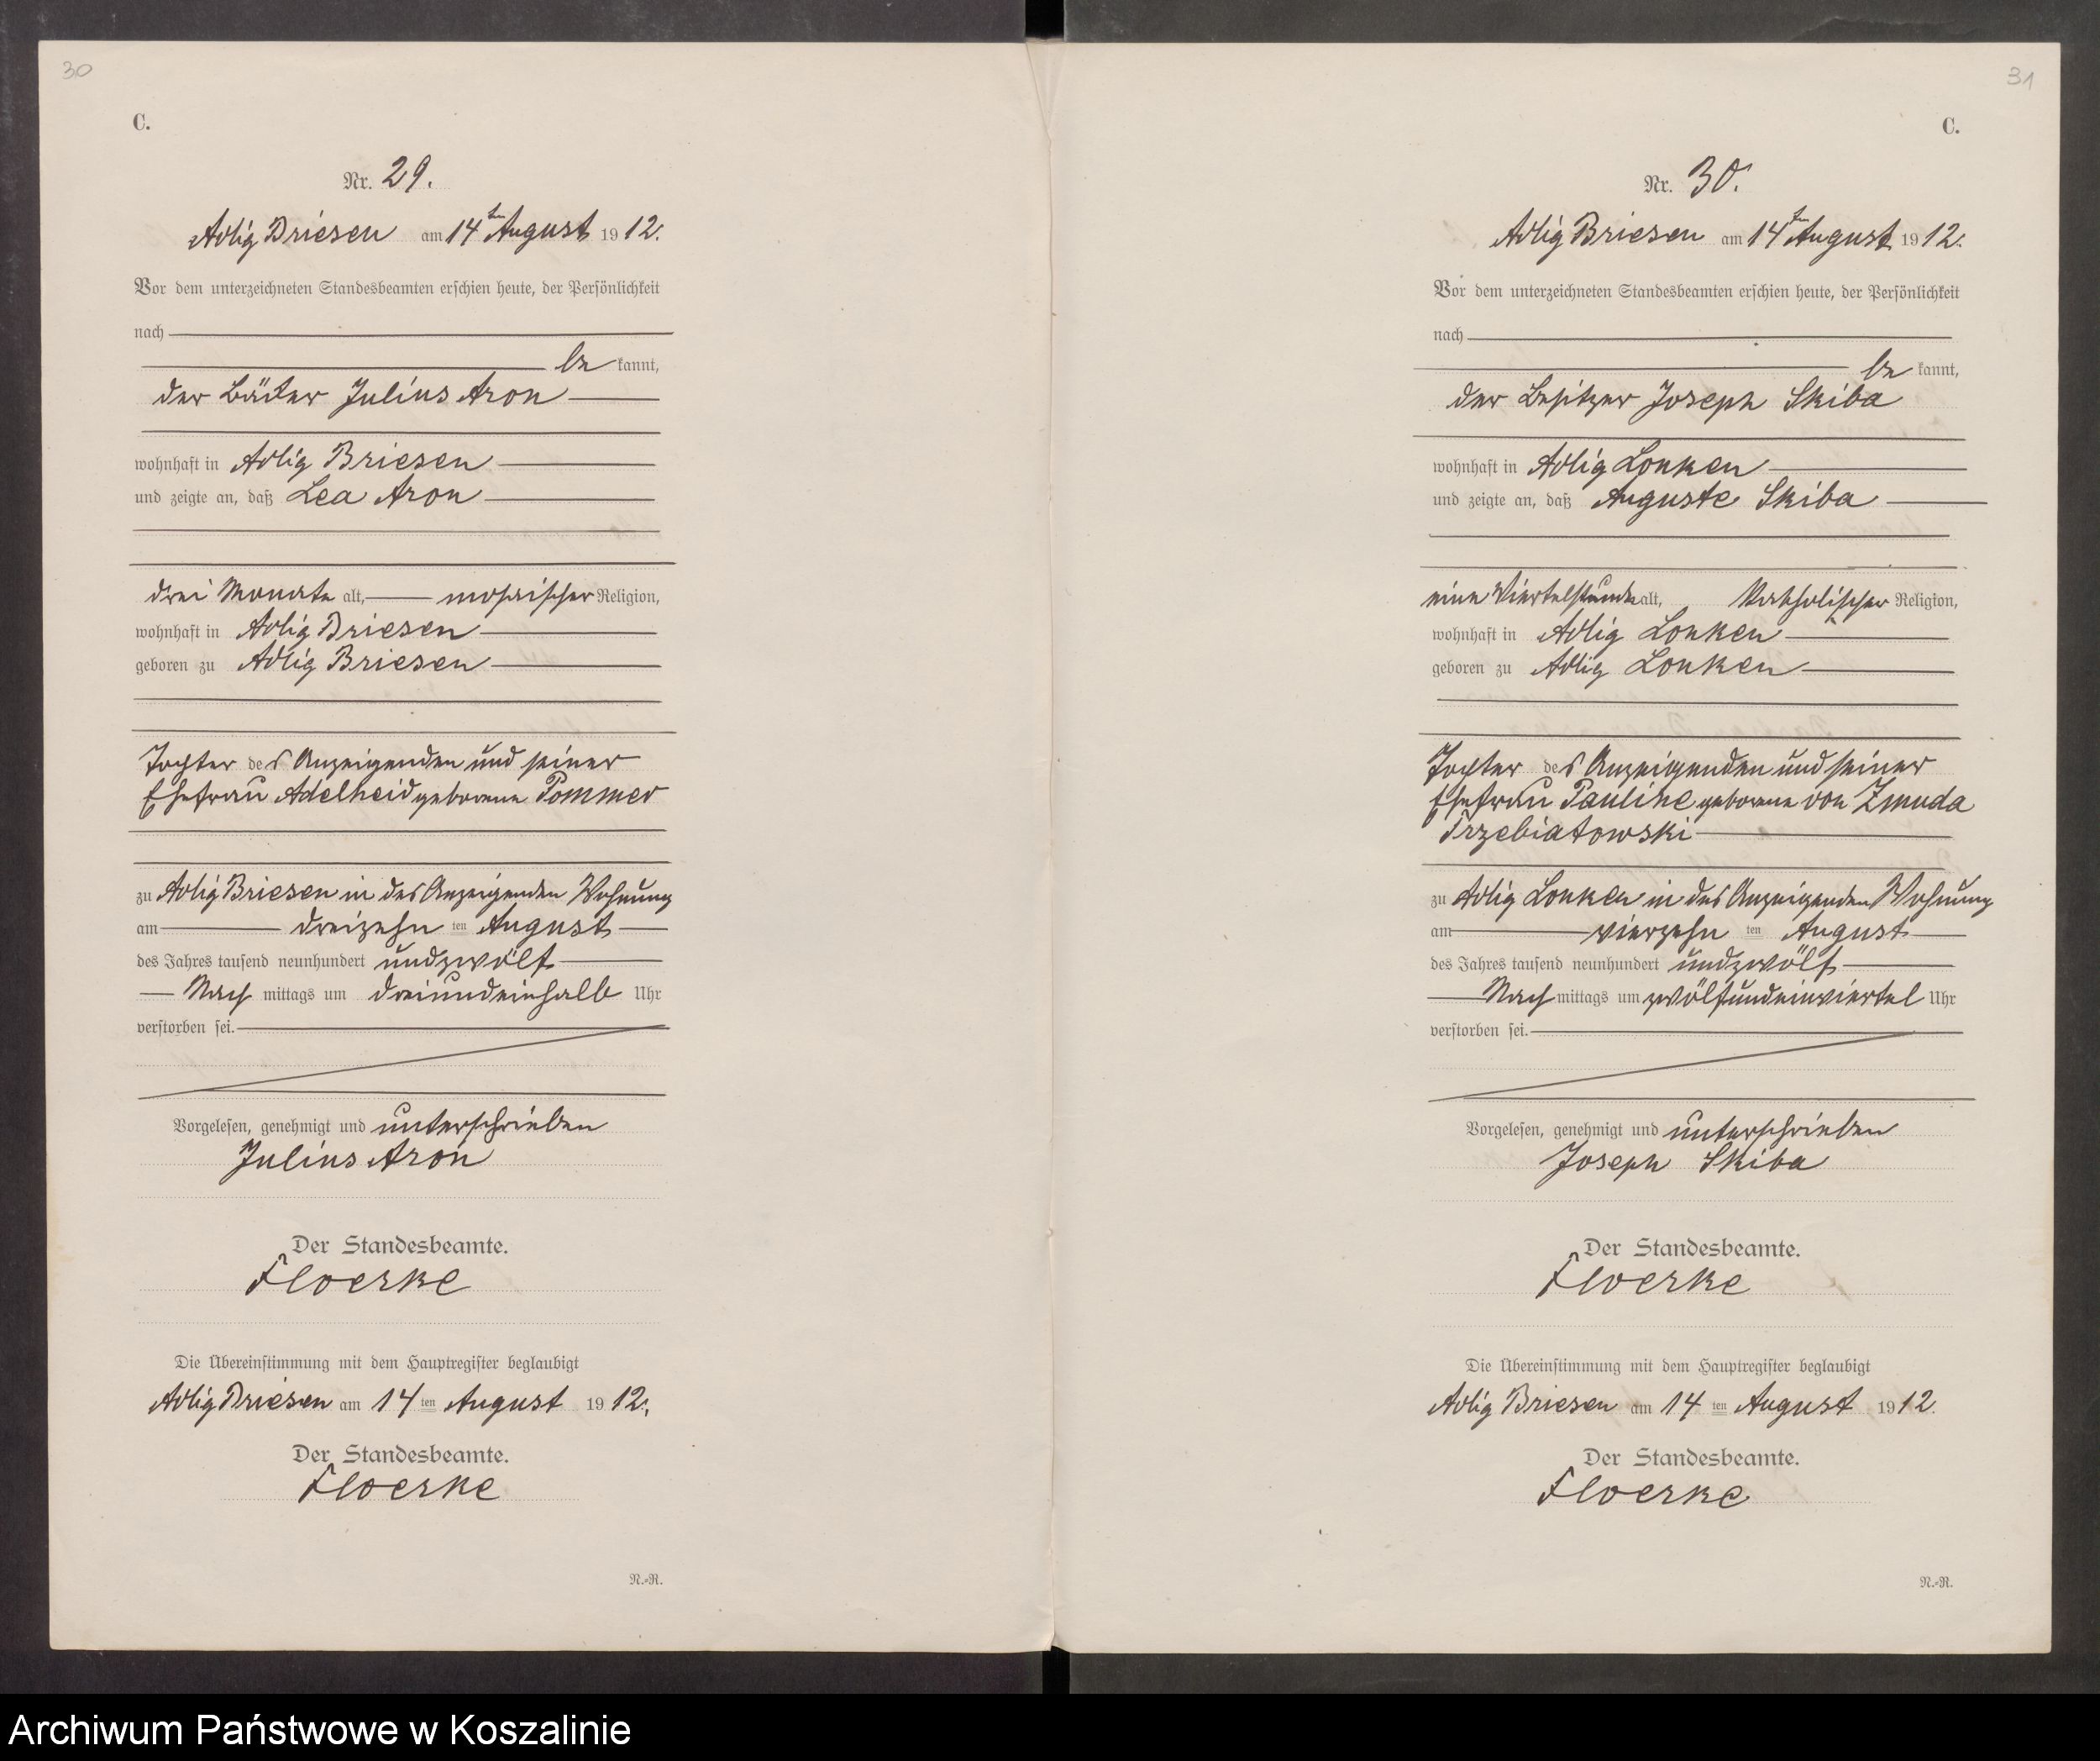 30
C.
Nr. 29.
Adlig Briesen am 14ten August 1912.
Vor dem unterzeichneten Standesbeamten erschien heute, der Persönlichkeit
nach
be kannt,
der Julius Aron
wohnhaft in Adlig Briesen
und zeigte an, daß Lea Aron
drei Monate alt, mosaischer Religion,
wohnhaft in Adlig Briesen
geboren zu Adlig Briesen
Tochter des Anzeigenden und seiner
Ehefrau Adelheid geborene Pommer
zu Adlig Briesen in des Anzeigenden Wohnung
am dreizehn ten August
des Jahres tausend neunhundert undzwölf
Nach mittags um dreiundeinhalb Uhr
verstorben sei.
Vorgelesen, genehmigt und unterschrieben
Julius Aron
Der Standesbeamte.
Floerke
Die Übereinstimmung mit dem Hauptregister beglaubigt
Adlig Briesen am 14 ten August 1912.
Der Standesbeamte.
Floerke
N.-R.
31
C.
Nr. 30.
Adlig Briesen am 14ten August 1912.
Vor dem unterzeichneten Standesbeamten erschien heute, der Persönlichkeit
nach
be kannt,
der Besitzer Joseph Skiba
wohnhaft in Adlig Lonken
und zeigte an, daß Auguste Skiba
eine Viertelstunde alt, katholischer Religion,
wohnhaft in Adlig Lonken
geboren zu Adlig Lonken
Tochter des Anzeigenden und seiner
Ehefrau Pauline geborene von Zmuda
Trzebiatowski
zu Adlig Lonken in des Anzeigenden Wohnung
am vierzehn ten August
des Jahres tausend neunhundert undzwölf
Nach mittags um zwölfundeinviertel Uhr
verstorben sei.
Vorgelesen, genehmigt und unterschrieben
Joseph Skiba
Der Standesbeamte.
Floerke
Die Übereinstimmung mit dem Hauptregister beglaubigt
Adlig Briesen am 14 ten August 1912.
Der Standesbeamte.
Floerke
N.-R.
Archiwum Państwowe w Koszalinie